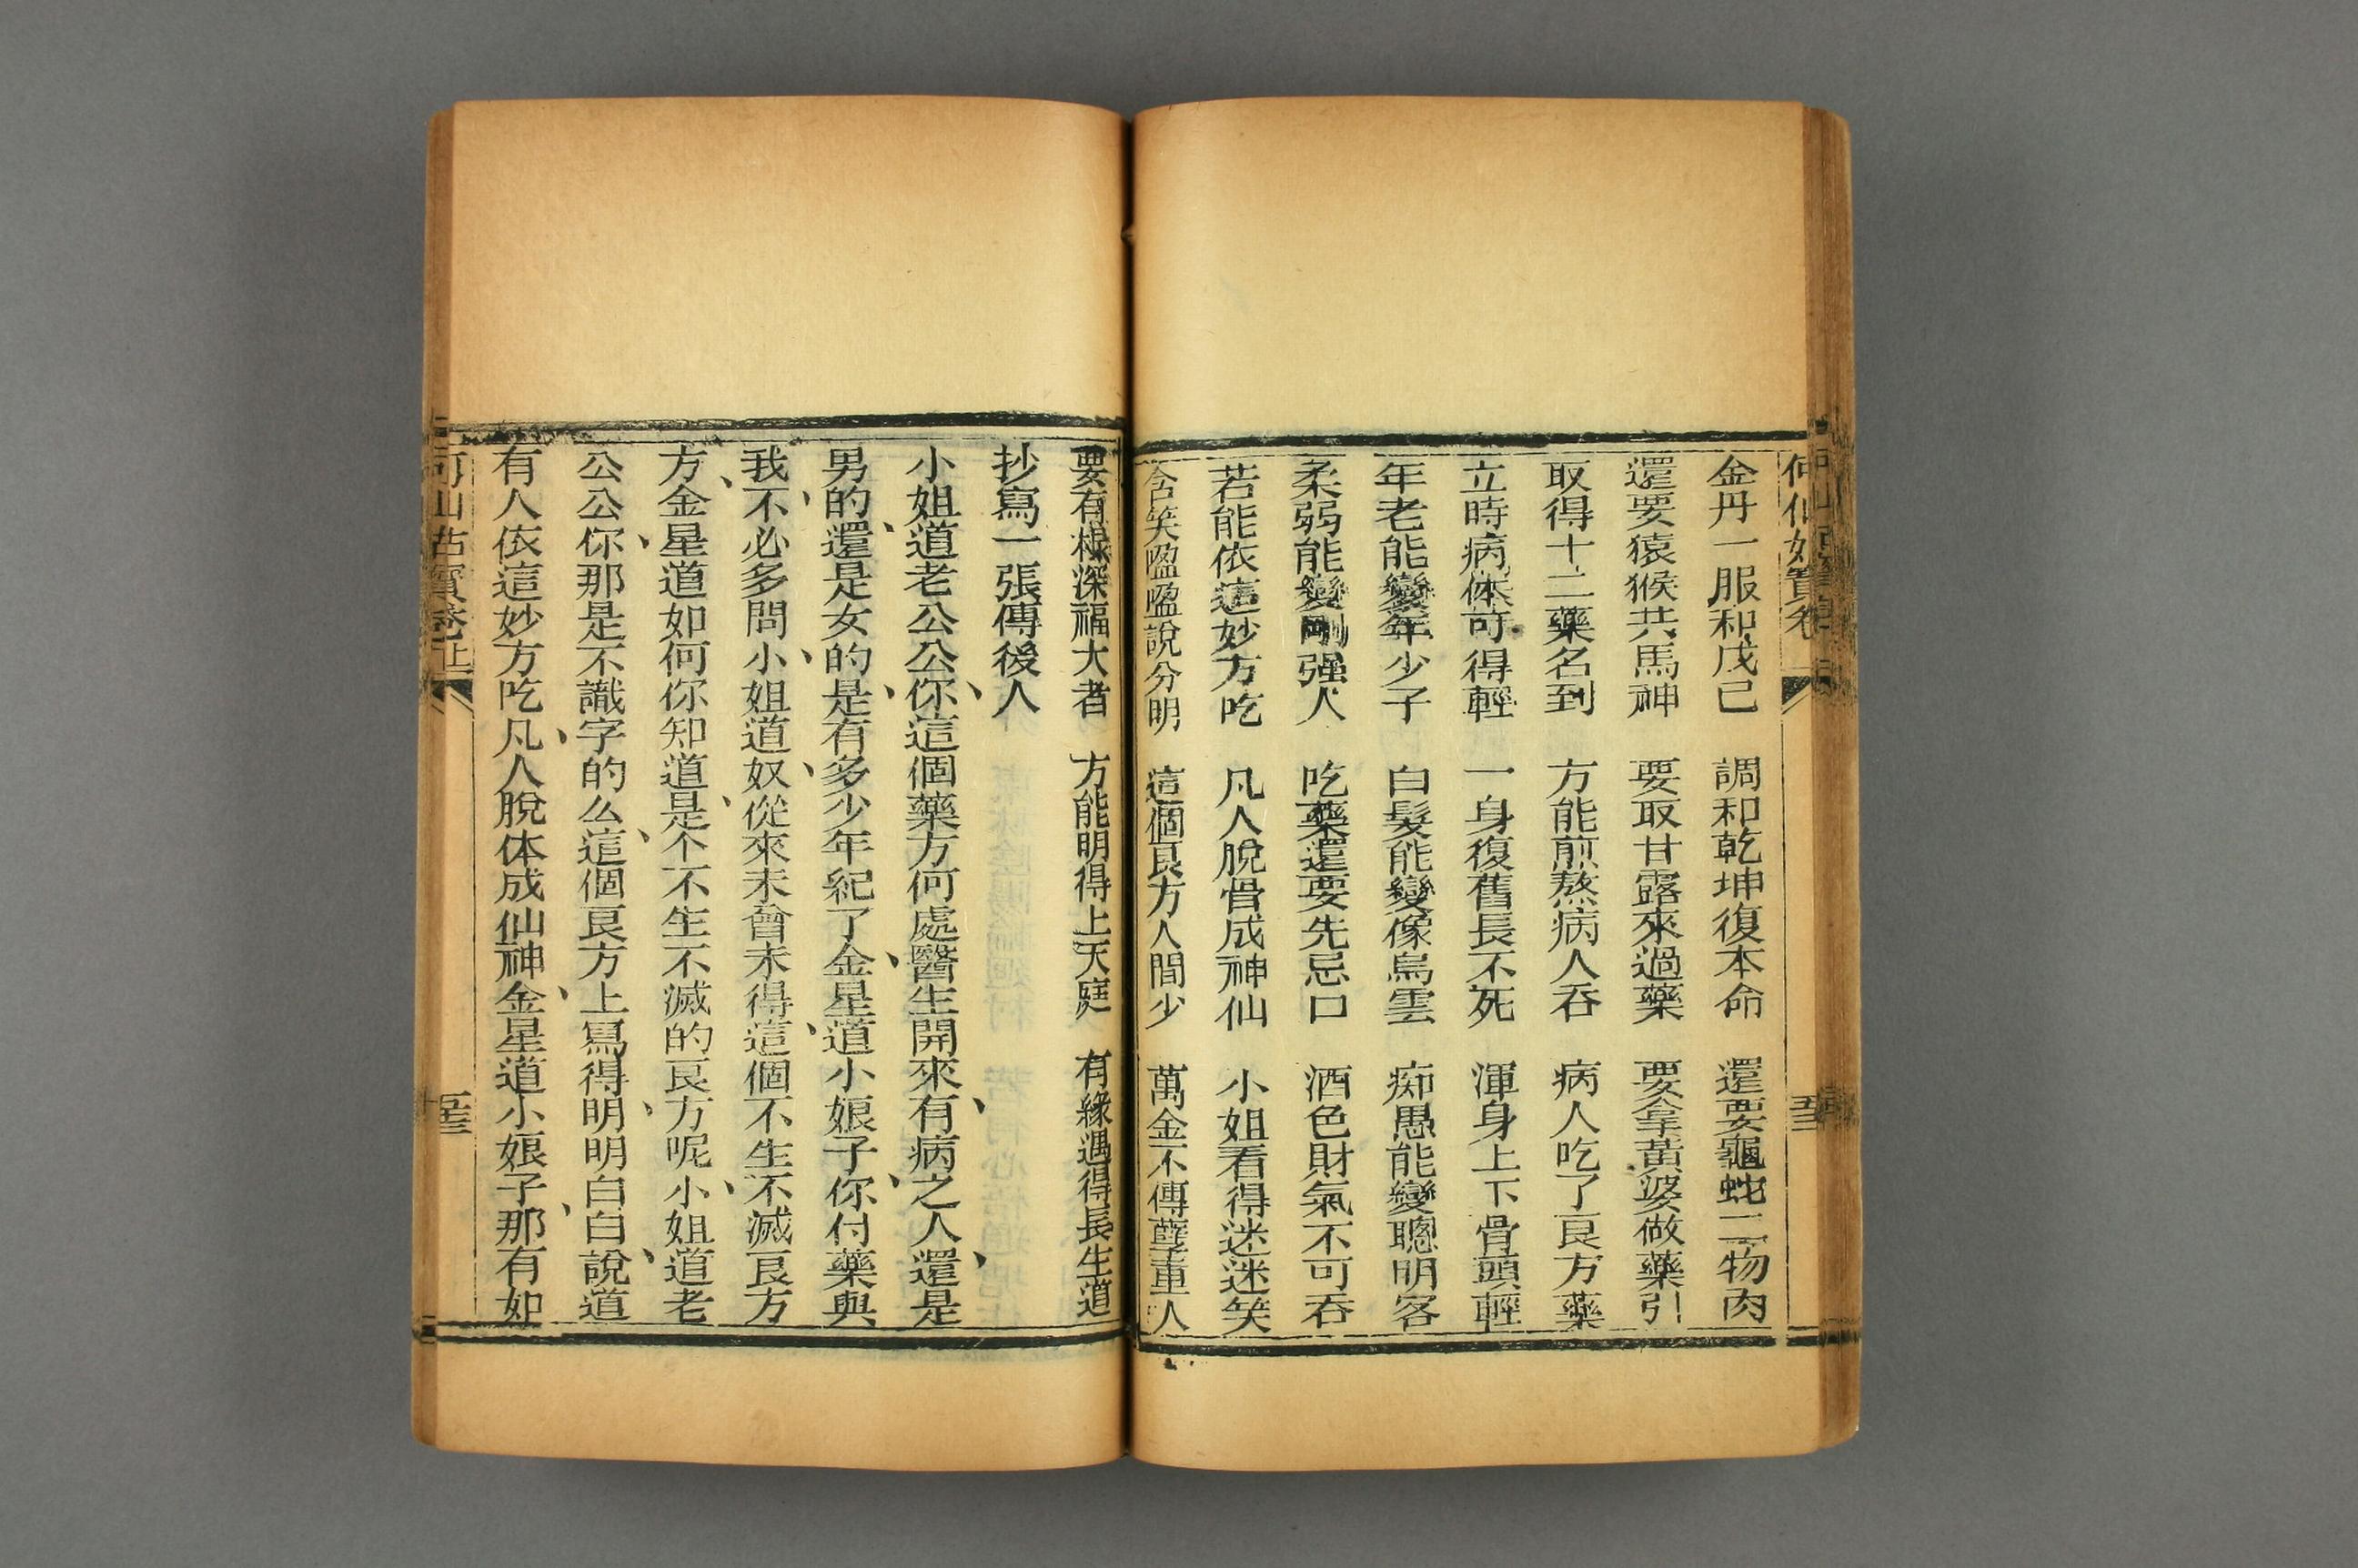 金丹一服和戊己 調和乾坤復本命 還要龜蛇二物肉
還要猿猴共馬神 要取甘露來過藥 要拿黃婆做藥引
取得十二藥名到 方能煎熬病人吞 病人吃了良方藥
立時病体可得輕 一身復舊長不死 渾身上下骨頭輕
年老能變年少子 白髮能變像烏雲 痴愚能變聰明客
柔弱能變剛强人 吃藥還要先忌口 酒色財氣不可吞
若能依這妙方吃 凡人脫骨成神仙 小姐看得迷迷笑
含笑嗌嗌說分明 這個良方人間少 萬金不傳孽重人
要有根深福大者 方能明得上天庭 有緣遇得長生道
抄寫一張傳後人
小姐道老公公你、這個藥方何處醫生開來、有病之人還、是
男的、還是女的、是有多少年紀了、金星道小娘子、你付藥與
我、不必多問、小姐道、奴從來未曾未得、這個不生不滅良方
方、金星道如何你知道、是个不生不滅的良方呢、小姐道老
公公、你那是不識字的么、這個良方上寫得、明明白白、說道
有人依這妙方吃、凡人脫体成仙神、金星道小娘子、那有如